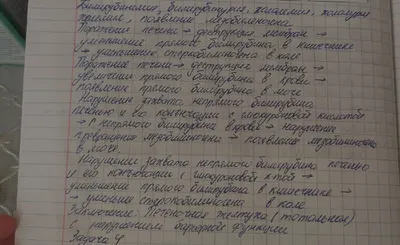 билирубинемия, билирубинурия, холалемия, холалурия
появление мезобилиногена
Поражение печени → деструкция мембран →
уменьшение прямого билирубина в кишечнике
→ уменьшение стеркобилиногена в кале
Поражение печени → деструкция мембран →
увеличение прямого билирубина в крови →
появление прямого билирубина в моче
Нарушение захвата непрямого билирубина
печенью и его конъюгации с глюкуроновой кислотой
→ ↑ непрямого билирубина в крови → нарушение
превращения мезобилиногена → появление мезобилиногена
в моче.
Нарушение захвата непрямого билирубина печенью
и его конъюгации с глюкуроновой к-той →
уменьшение прямого билирубина в кишечнике →
→ уменьшение стеркобилиногена в кале
Заключение: Печеночная желтуха (тотальная)
с нарушением барьерной функции
Задача 4